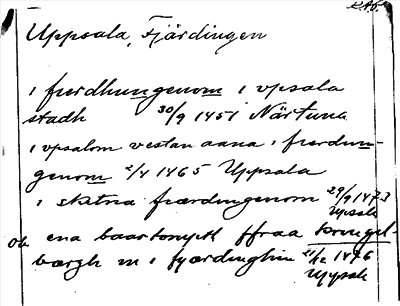 Uppsala, Fjärdingen
i frerdhungenom i vpsala
stadh 30/9 1451 Närtuna
i vpsalom vestan aana i frerdun-
genom 2/4 1465 Uppsala
i sama frærdungenom 29/9 1473
Uppsala
ok ena baartompth ffraa
bærgh in i fyærdinghin 21/12 1476
Uppsala